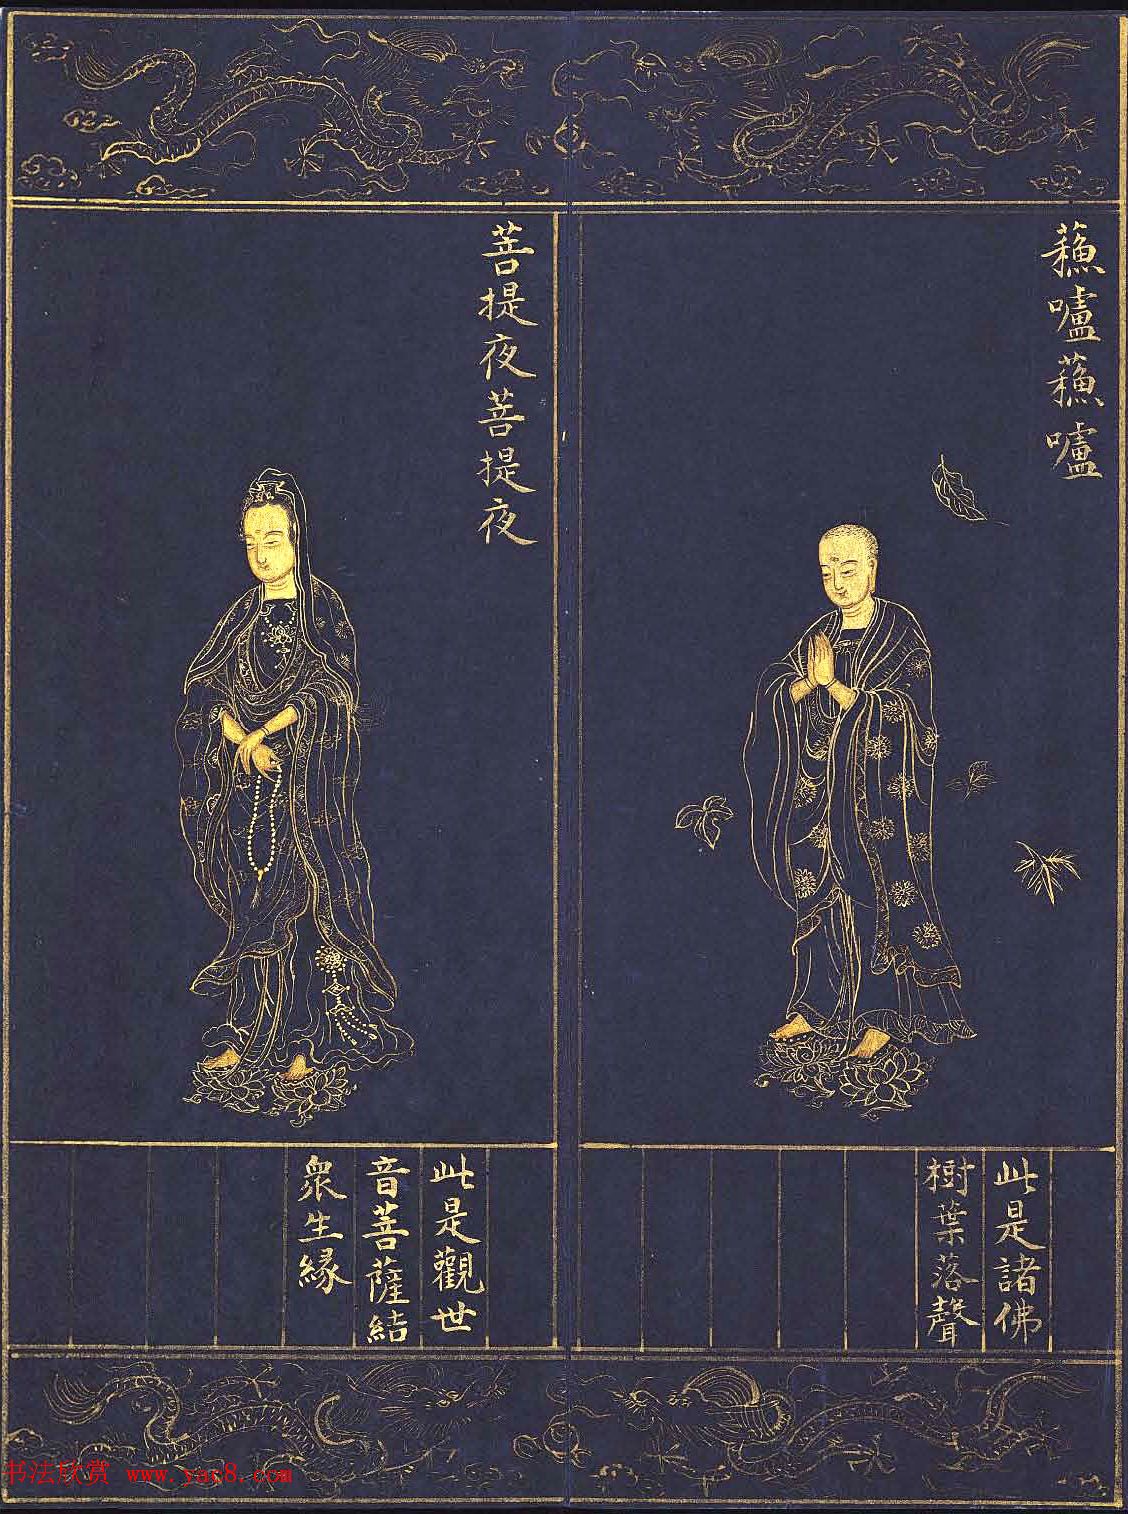 蘓嚧蘓嚧
此是諸佛
樹葉落聲
菩提夜菩提夜
此是觀世
音菩薩結
衆生緣
书法欣赏 www.yac8.com